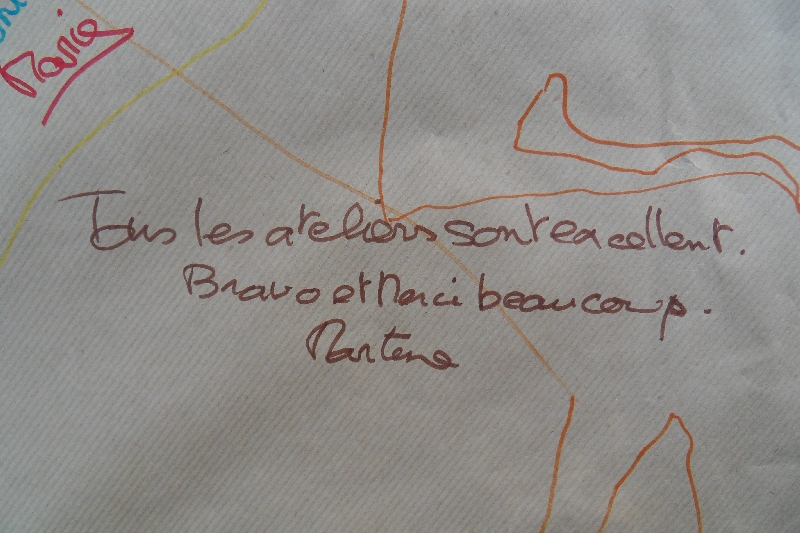 Maria
Tous les ateliers sont excellent.
Bravo et Merci beaucoup.
Martene